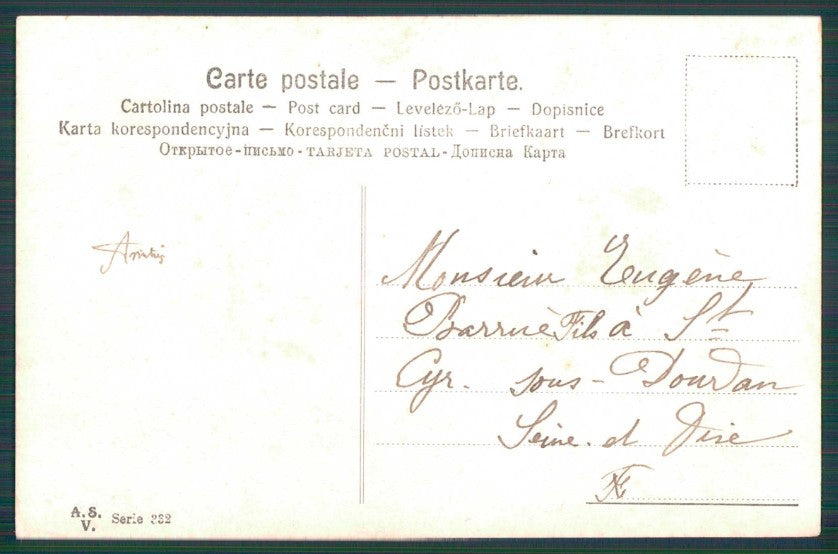 Carte postale — Postkarte.
Cartolina postale — Post card — Levelező-Lap — Dopisnice
Karta korespondencyjna — Korespondenční lístek — Briefkaart — Brefkort
Открытое-письмо - TARJETA POSTAL - Дописна Карта
Monsieur Eugène
Barruè Fils à St
Cyr. sous - Dourdan
Seine. et Oise
A.S.
V. Serie 332